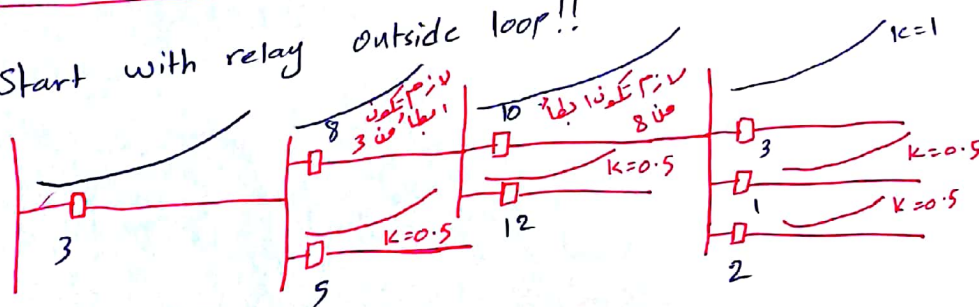 Start with relay outside loop!!
K=1
8 لازم تكون
ابطأ من 3
10 لازم تكون ابطأ
من 8
3
K=0.5
K=0.5
1
K=0.5
K=0.5
3
5
12
2